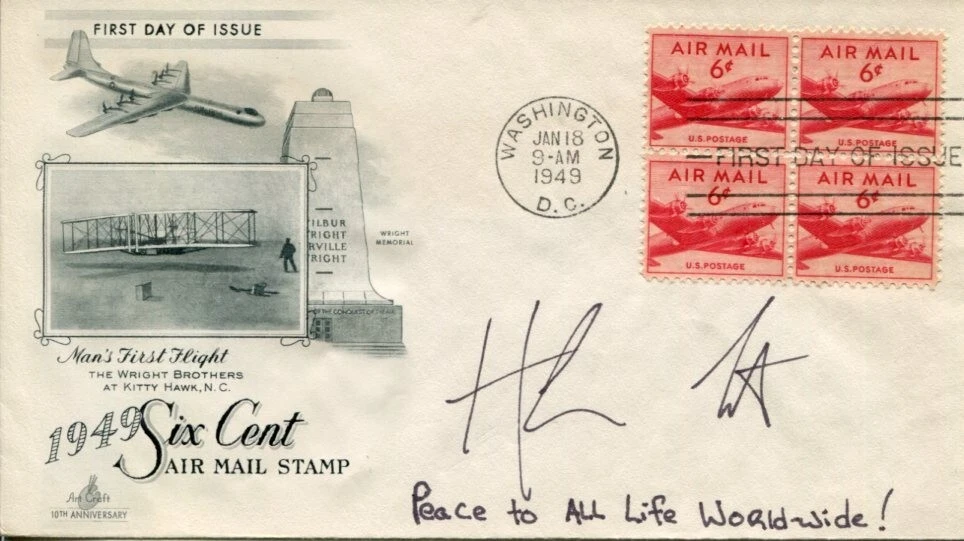 FIRST DAY OF ISSUE
WILBUR
WRIGHT
ORVILLE
WRIGHT
WRIGHT
MEMORIAL
OF THE CONQUEST OF THE AIR
Man's First Flight
THE WRIGHT BROTHERS
AT KITTY HAWK, N.C.
1949 Six Cent
AIR MAIL STAMP
Art Craft
10TH ANNIVERSARY
WASHINGTON
JAN 18
9-AM
1949
D.C.
AIR MAIL
6¢
U.S. POSTAGE
AIR MAIL
6¢
U.S. POSTAGE
FIRST DAY OF ISSUE
AIR MAIL
6¢
U.S. POSTAGE
AIR MAIL
6¢
U.S. POSTAGE
Peace to ALL Life World-wide!